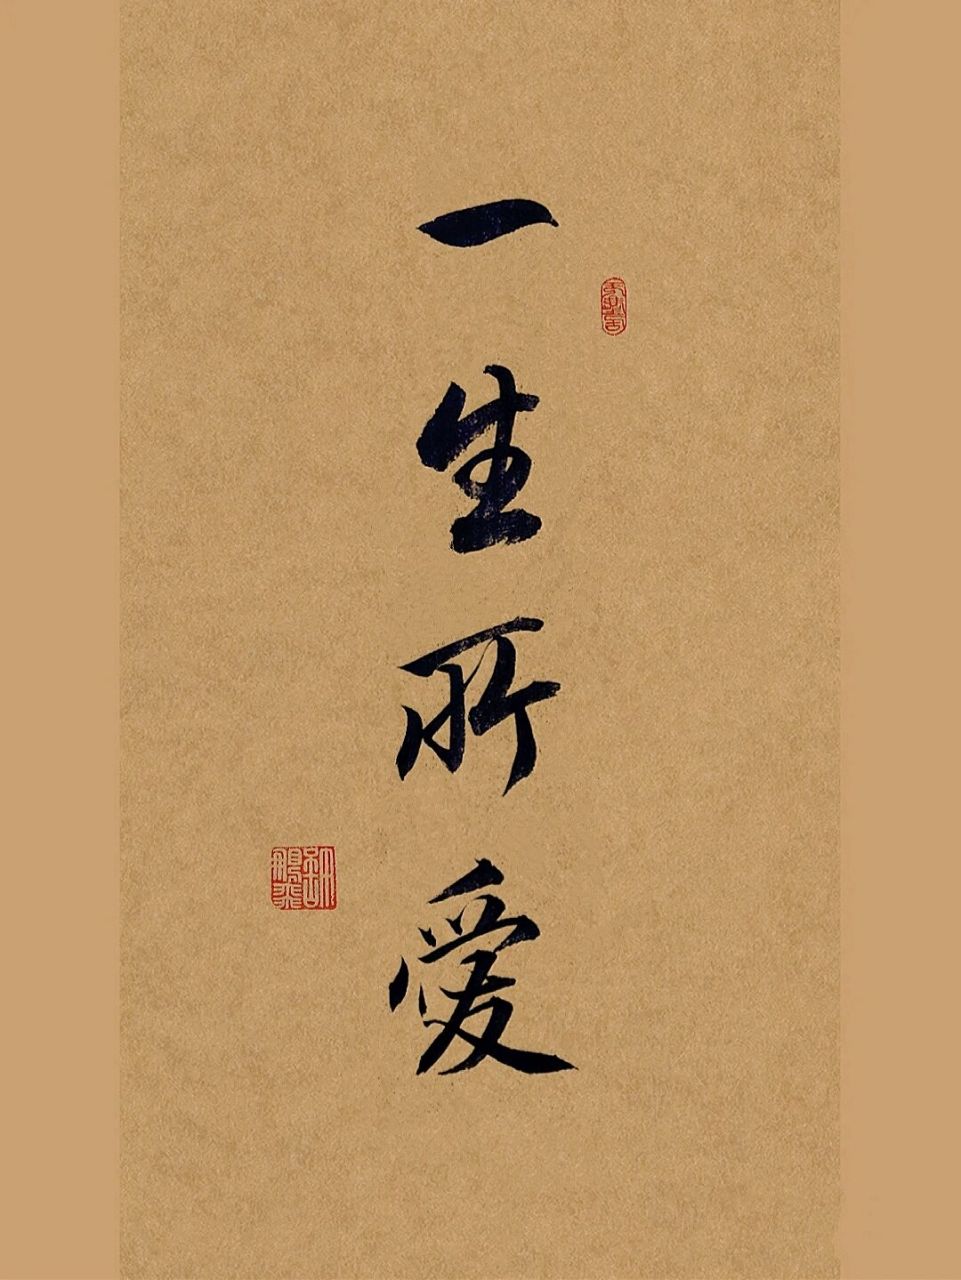 一生所愛